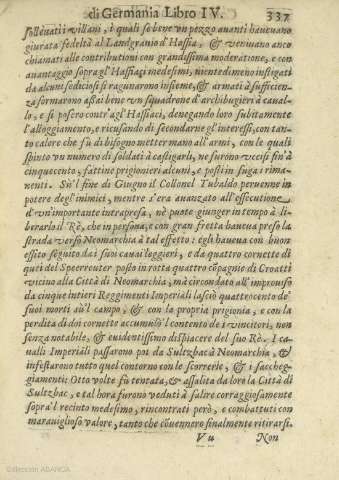 di Germania Libro IV. 337
sollevati i villani, i quali se bene un pezzo avanti havevano
giurata fedeltà al Landgravio d'Hassia, & venivano anco
chiamati alle contributioni con grandissima moderatione, e con
avantaggio sopra gl'Hassiaci medesimi, nientedimeno instigati
da alcuni sodiciosi si ragunarono insieme, & armati à sufficien-
za formarono assai bene un squadrone d'archibugieri à caval-
lo, e si posero contr'agl'Hassiaci, denegando loro subitamente
l'alloggiamento, e ricusando di secondarne gl'interessi, con tan-
to calore che fù di bisogno metter mano all'armi, con le quali
spinto un numero di soldati à castigarli, ne furono uccisi fin'à
cinquecento, fattine prigionieri alcuni, e posti in fuga i rima-
nenti. Sù'l fine di Giugno il Collonel Tubaldo pervenne in
potere degl'inimici, mentre s'era avanzato all'essecutione
d'un'importante intrapresa, nè puote giunger in tempo à li-
berarlo il Rè, che in persona, e con gran fretta haveva preso la
strada verso Neomarchia à tal effetto: egli haveva con buon
essito seguito dai suoi cavaileggieri, e da quattro cornette di
quei del Speerreuter posto in rotta quattro cõpagnie di Croatti
vicino alla Città di Neomarchia, mà circondato all'improviso
da cinque intieri Reggimenti Imperiali lasciò quattrocento de'
suoi morti sù'l campo, & con la propria prigionia, e con la
perdita di doi cornette accumulò'l contento de i vincitori, non
senza notabile, & evidentissimo dispiacere del suo Rè. I ca-
valli Imperiali passarono poi da Sultzbac à Neomarchia, &
infestarono tutto quel contorno con le scorrerie, & i saccheg-
giamenti: Otto volte fù tentata, & assalita da loro la Città di
Sultzbac, e tal hora furono veduti à salire corraggiosamente
sopra'l recinto medesimo, rincontrati però, e combattuti con
maraviglioso valore, tanto che cõvennero finalmente ritirarsi.
Vu Non
Colección ABANCA